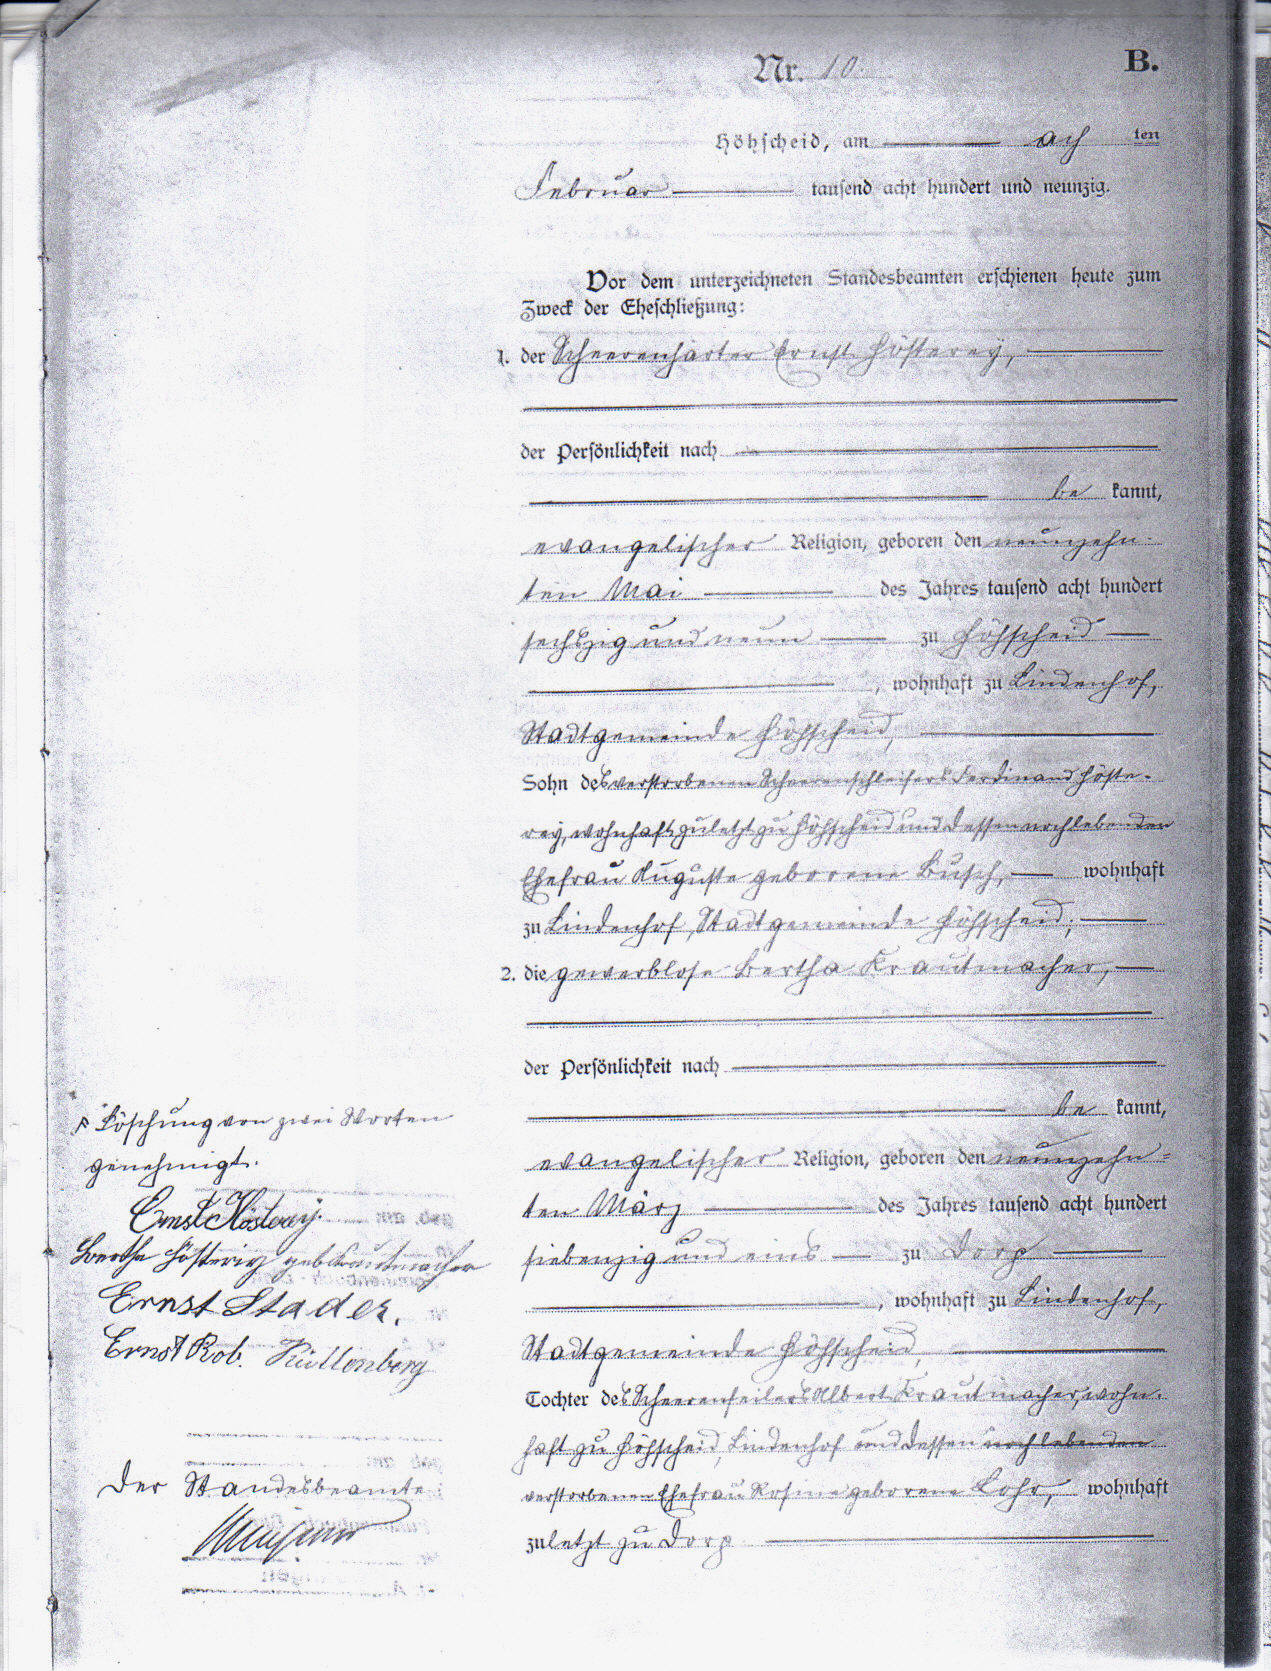 Nr. 10.
B.
Höhscheid, am ach ten
Februar tausend acht hundert und neunzig.
Vor dem unterzeichneten Standesbeamten erschienen heute zum
Zweck der Eheschließung:
1. der Scheerenhärter Ernst Höfterey,
der Persönlichkeit nach
be kannt,
evangelischer Religion, geboren den neunzehn-
ten Mai des Jahres tausend acht hundert
sechszig und neun zu Höhscheid
, wohnhaft zu Lindenhof,
Stadtgemeinde Höhscheid,
Sohn des verstorbenen Scheerenschleifers Ferdinand Höste-
rey, wohnhaft zuletzt zu Höhscheid und dessen noch lebenden
Ehefrau Auguste geborene Busch, wohnhaft
zu Lindenhof, Stadtgemeinde Höhscheid;
2. die gewerblose Bertha Krautmacher,
der Persönlichkeit nach
be kannt,
evangelischer Religion, geboren den neunzehn-
ten März des Jahres tausend acht hundert
siebenzig und eins zu Dorp
, wohnhaft zu Lindenhof,
Stadtgemeinde Höhscheid,
Tochter des Scheerenfeilers Albert Krautmacher, wohn-
haft zu Höhscheid, Lindenhof und dessen noch lebenden
verstorbenen Ehefrau Rosine geborene Lohr, wohnhaft
zuletzt zu Dorp
Löschung von zwei Worten
genehmigt.
Ernst Hösterey.
Bertha Hösterey geb. Krautmacher
Ernst Stader.
Ernst Rob. Küllenberg
Der Standesbeamte: